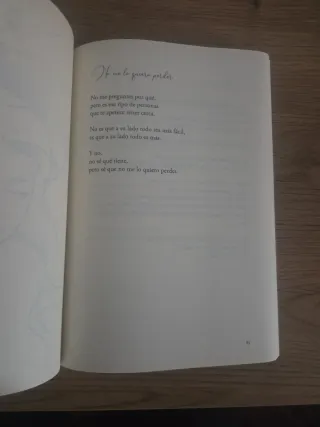 no lo quiero perder
No me preguntes por qué,
pero es ese tipo de persona
que te apetece tener cerca.
No es que a su lado todo sea más fácil,
es que a su lado todo es más.
Y no,
no sé qué tiene,
pero sé que no me lo quiero perder.